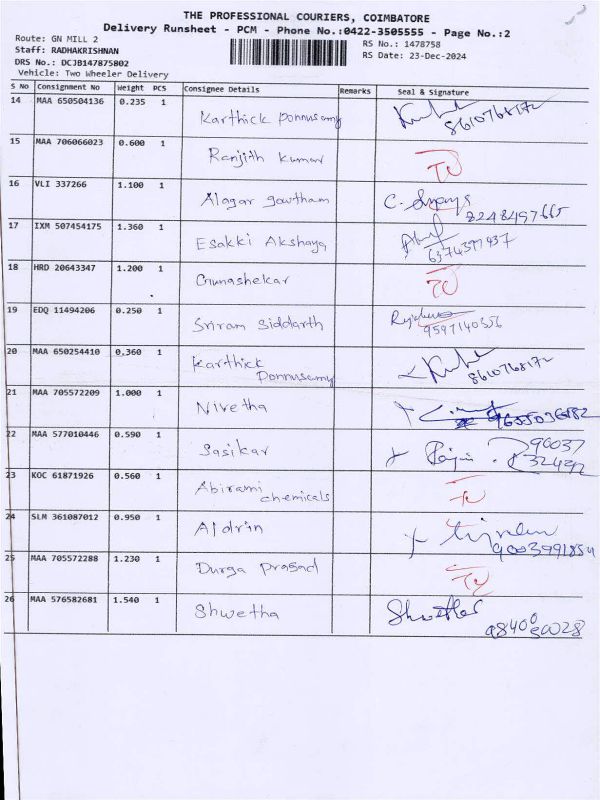 THE PROFESSIONAL COURIERS, COIMBATORE
Delivery Runsheet - PCM - Phone No.:0422-3505555 - Page No.:2
Route: GN MILL 2
RS No.: 1478758
Staff: RADHAKRISHNAN
RS Date: 23-Dec-2024
DRS No.: DCJB147875802
Vehicle: Two Wheeler Delivery
S No Consignment No Weight PCS Consignee Details Remarks Seal & Signature
14 MAA 650504136 0.235 1 Karthick Ponnusamy 8610768172
15 MAA 706066023 0.600 1 Ranjith Kumar
16 VLI 337266 1.100 1 Alagar gowtham 8248497665
17 IXM 507454175 1.360 1 Esakki Akshaya
18 HRD 20643347 1.200 1 Gunashekar
19 EDQ 11494206 0.250 1 Sriram Siddarth 9597140356
20 MAA 650254410 0.360 1 Karthick Ponnusamy 8610768172
21 MAA 705572209 1.000 1 Nivetha
22 MAA 577010446 0.590 1 Sasikar 90037
32492
23 KOC 61871926 0.560 1 Abirami chemicals
24 SLM 361087012 0.950 1 Aldrin 9003991854
25 MAA 705572288 1.230 1 Durga Prasad
26 MAA 576582681 1.540 1 Shwetha